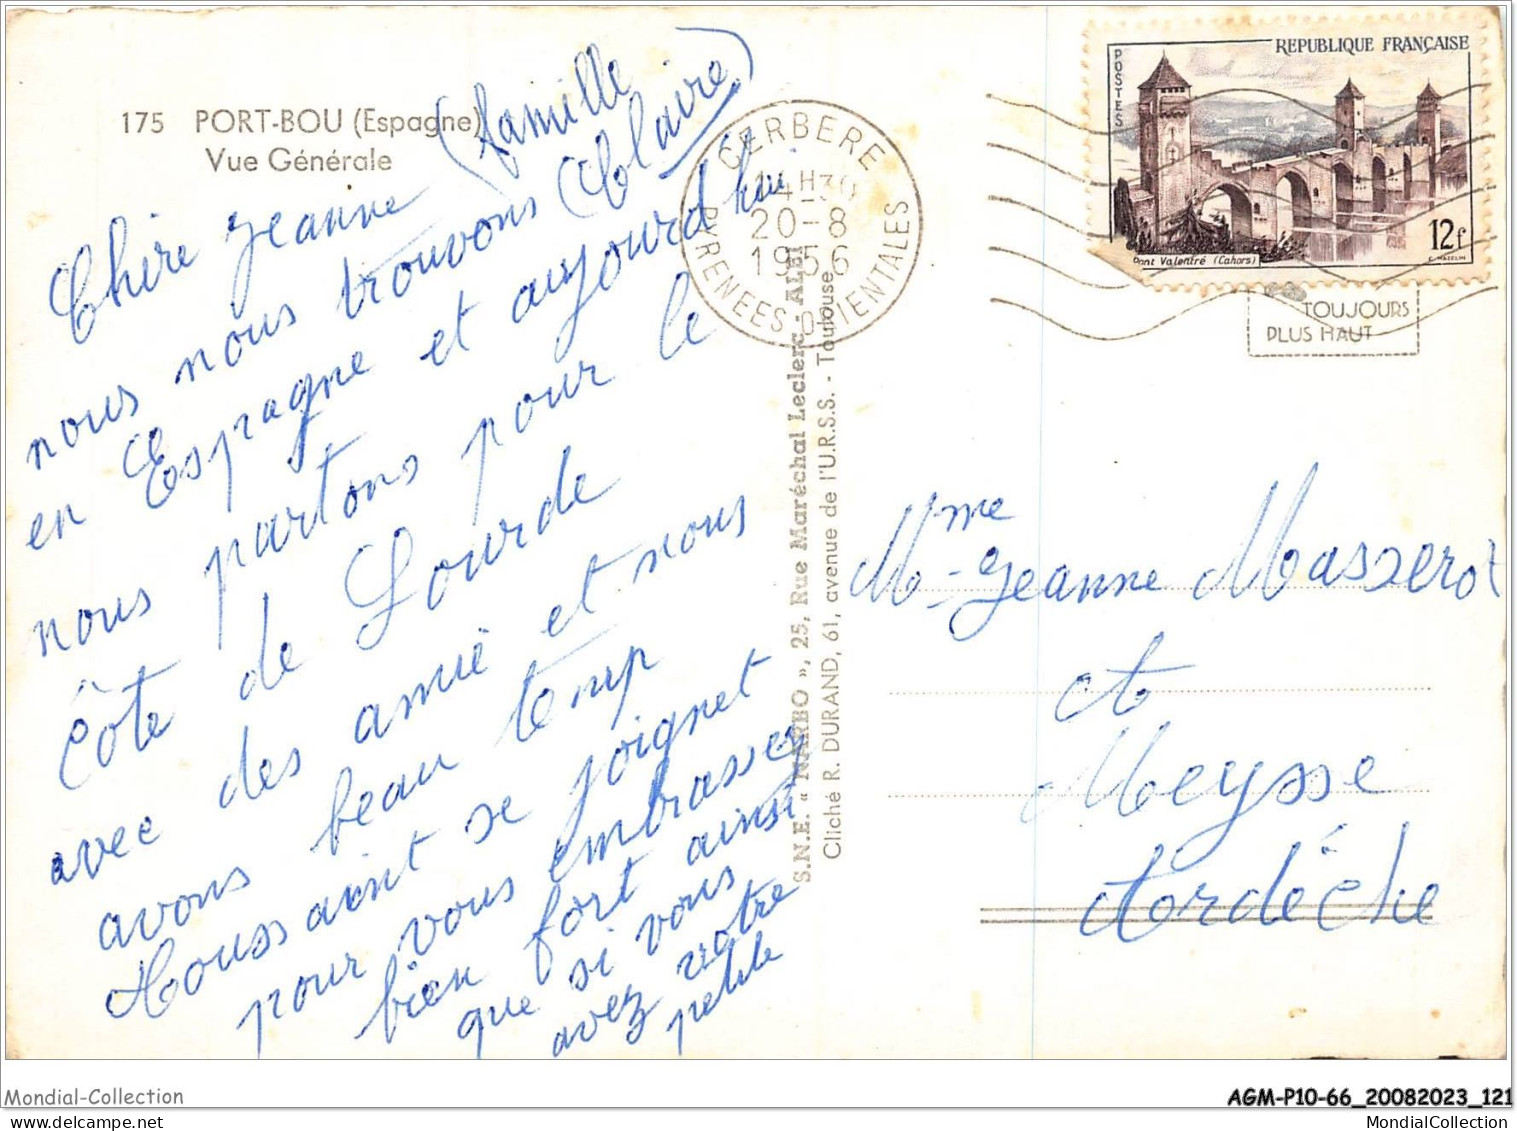 175 PORT-BOU (Espagne)
Vue Générale
(famille
Claire)
Chère Jeanne
nous nous trouvons
en Espagne et aujourd'hui
nous partons pour le
côte de Lourde
avec des amie et nous
avons beau temp
se joignet
pour vous embrasser
bien fort ainsi
que si vous
avez votre
petite
S.N.E. « NARBO », 25, Rue Maréchal Leclerc - ALBI
Cliché R. DURAND, 61, avenue de l'U.R.S.S. - Toulouse
CERBERE
14H30
20-8
1956
PYRENEES ORIENTALES
REPUBLIQUE FRANÇAISE
POSTES
Pont Valentré (Cahors)
12f
C. MAZELIN
TOUJOURS
PLUS HAUT
Mme Jeanne Maszerot
à
Meysse
Ardéche
Mondial-Collection
AGM-P10-66_20082023_121
MondialCollection.com